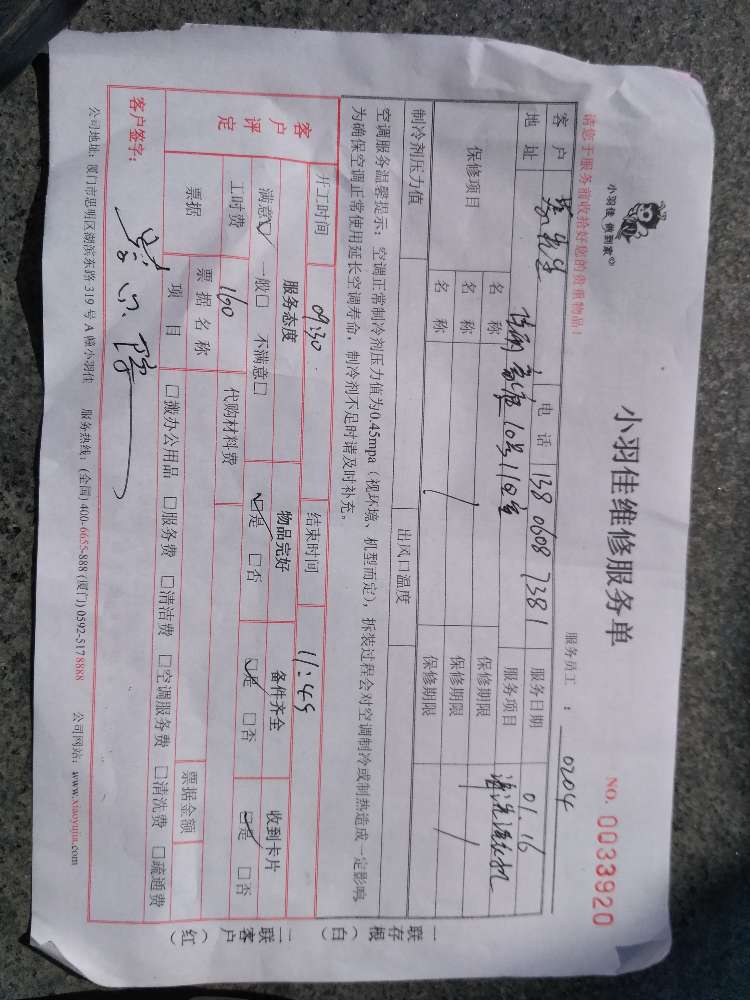 小羽佳 做到家
小羽佳维修服务单
NO. 0033920
请您于服务前收拾好您的贵重物品!
服务员工 : 0204
客 户 先生 电 话 138 0608 7381 服务日期 01.16
地 址 10号110室 服务项目 清洗
保修项目 名 称 保修期限
名 称 保修期限
名 称 保修期限
制冷剂压力值 出风口温度
空调服务温馨提示: 空调正常制冷剂压力值为0.45mpa (视环境、机型而定), 拆装过程会对空调制冷或制热造成一定影响,
为确保空调正常使用延长空调寿命, 制冷剂不足时请及时补充。
一联存根(白)
开工时间 09:30 结束时间 11:45
客户评定 服务态度 物品完好 备件齐全 收到卡片
满意☑ 一般□ 不满意□ ☑是 □否 ☑是 □否 ☑是 □否
工时费 160 代购材料费
票据 票据名称 票据金额
项 目 □搬办公用品 □服务费 □清洁费 □空调服务费 □清洗费 □疏通费
客户签字:
一联客户(红)
公司地址: 厦门市思明区湖滨东路 319 号 A 幢小羽佳 服务热线: (全国) 400-6655-888 (厦门) 0592-5178888 公司网站: www.xiaoyujia.com